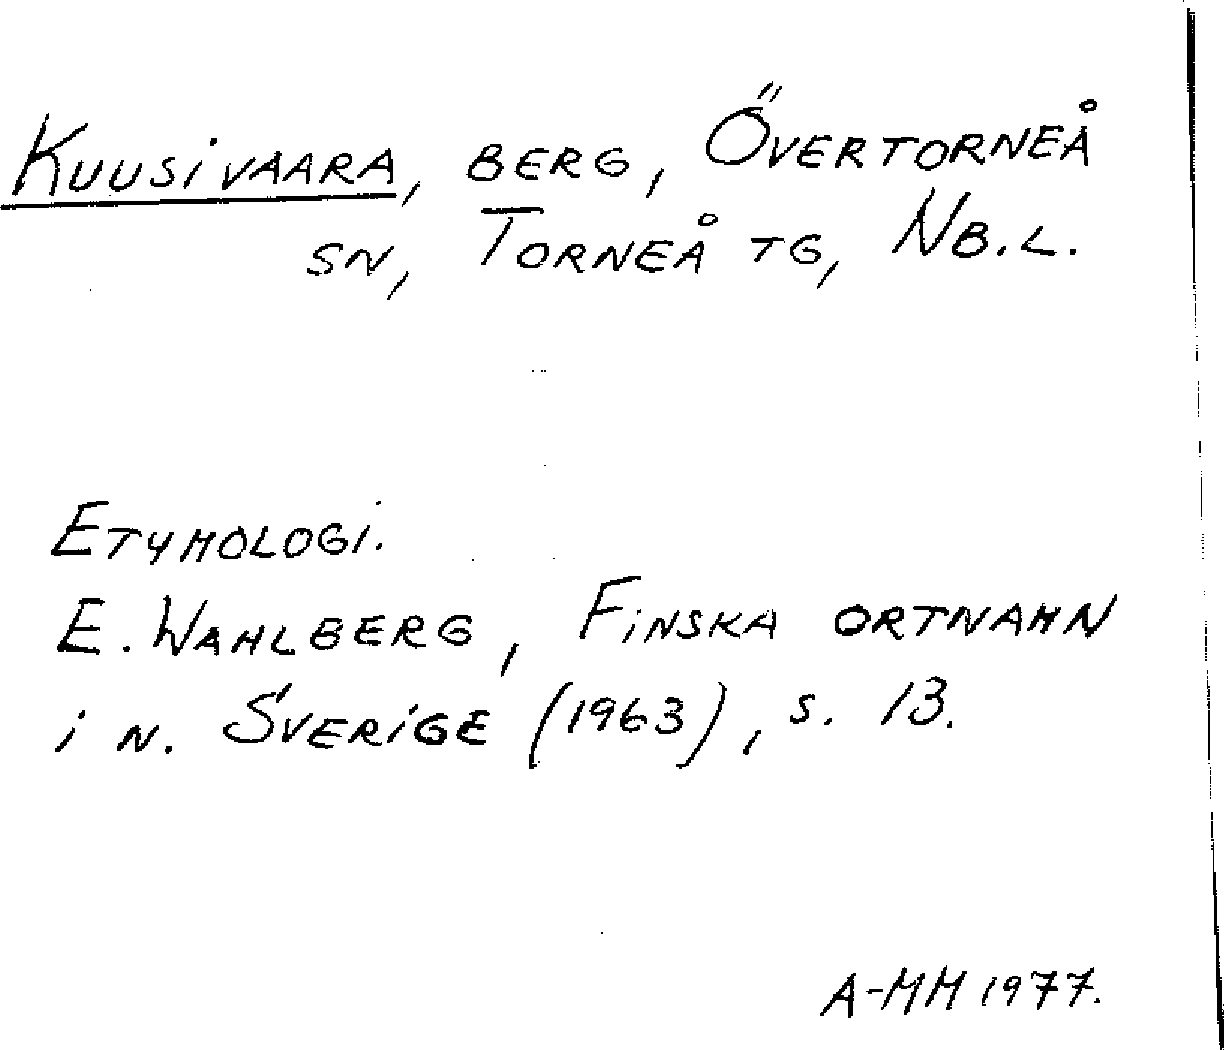 Kuusivaara, berg, Övertorneå
sn, Torneå tg, Nb.l.
Etymologi.
E. Wahlberg, Finska ortnamn
i n. Sverige (1963), s. 13.
A-MM 1977.